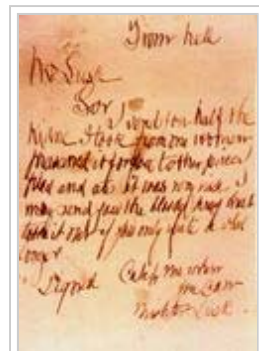 From hell
Mr Lusk
Sor
I send you half the
Kidne I took from one women
prasarved it for you tother piece I
fried and ate it was very nise. I
may send you the bloody knif that
took it out if you only wate a whil
longer
signed Catch me when
you can
Mishter Lusk